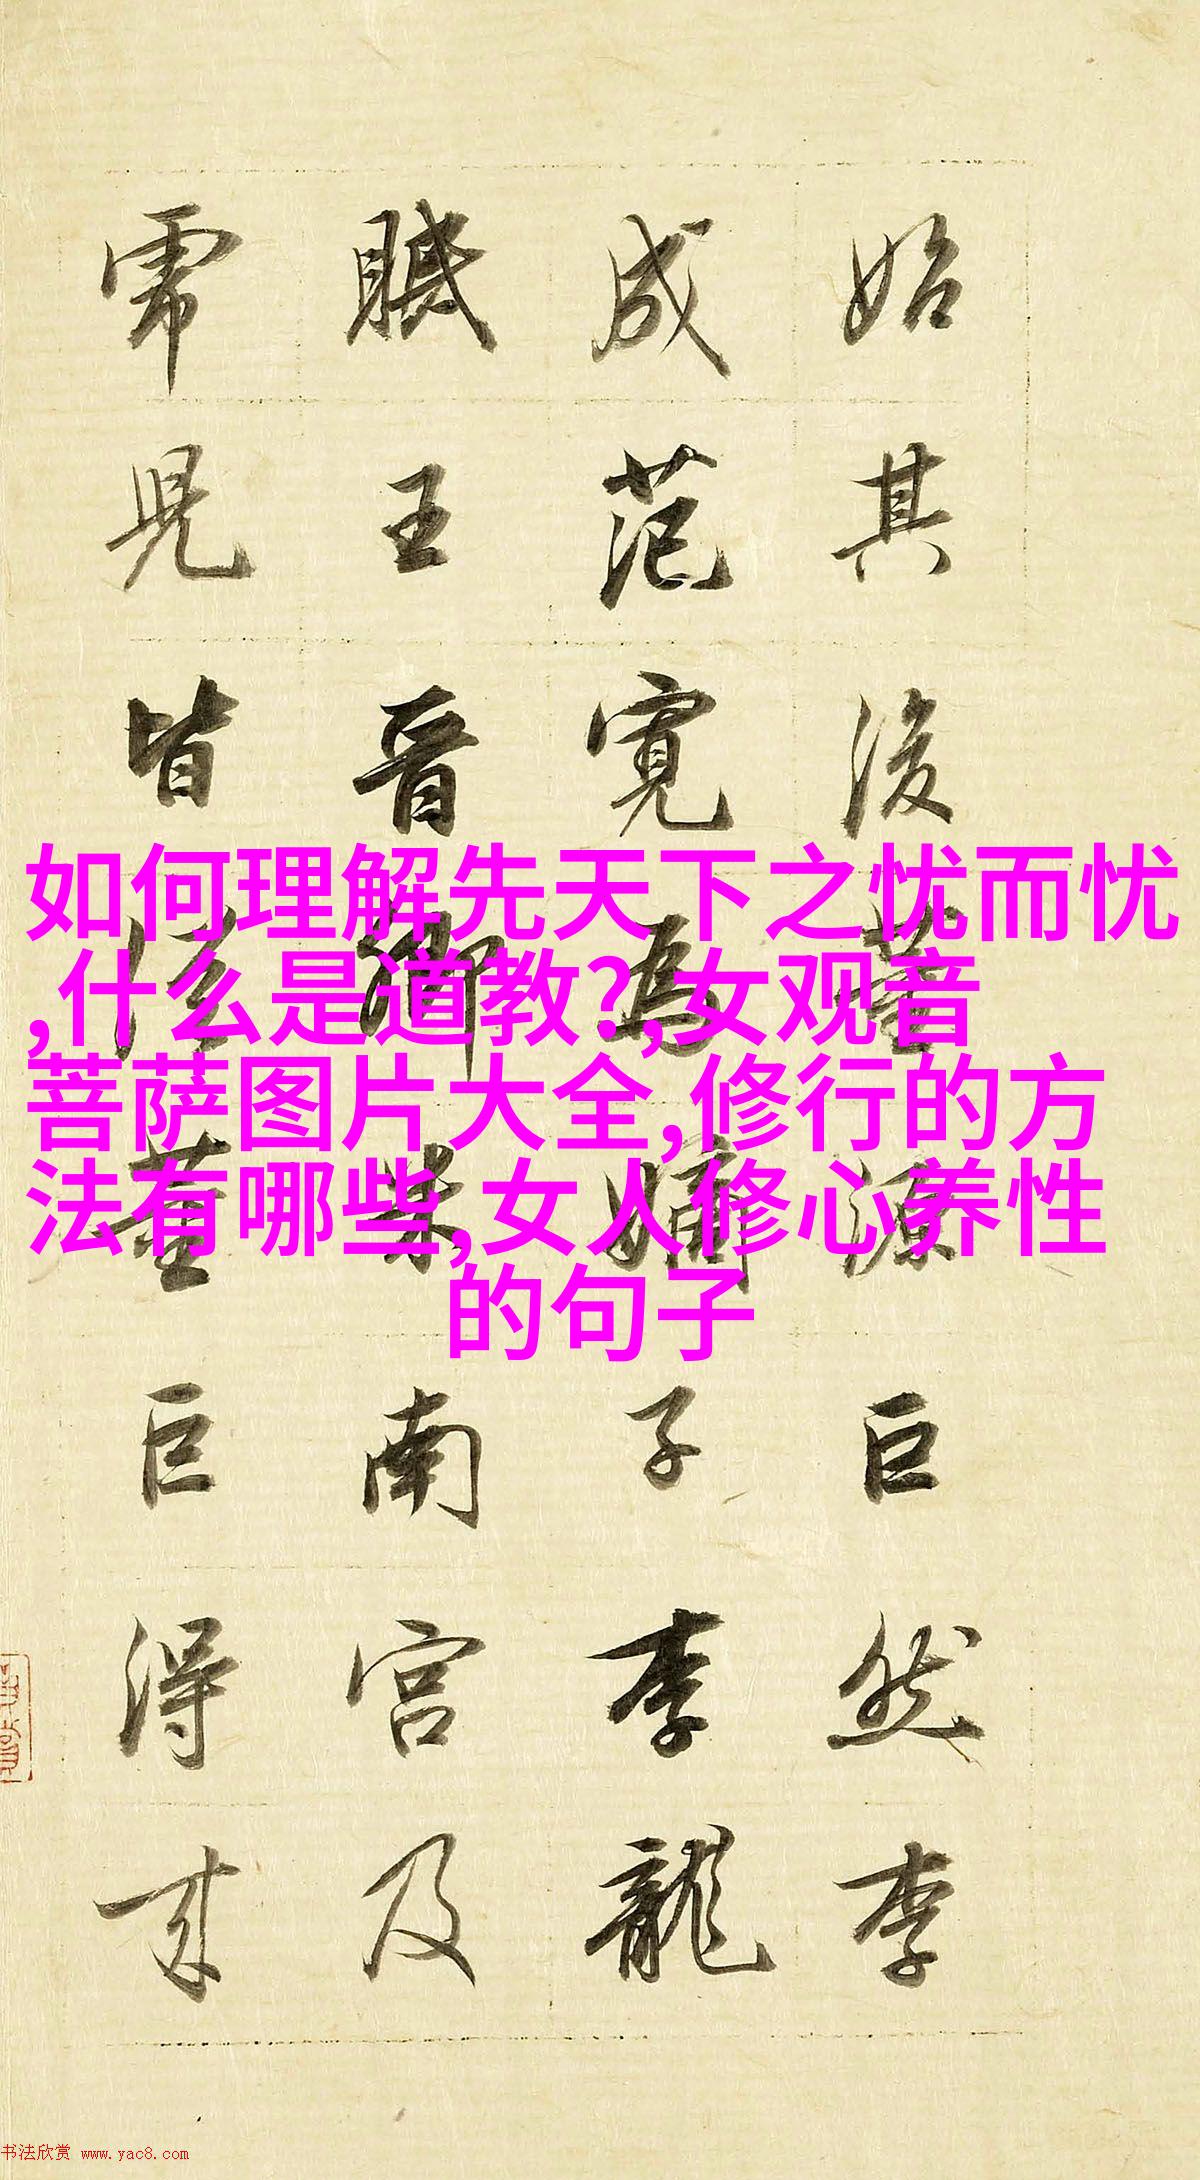 始其後董源巨然李
成范寬為嫡子李龍
眠王晋卿米南宮及
虎兒皆從董巨得来
如何理解先天下之忧而忧
,什么是道教?,女观音
菩萨图片大全,修行的方
法有哪些,女人修心养性
的句子
书法欣赏 www.yac8.com